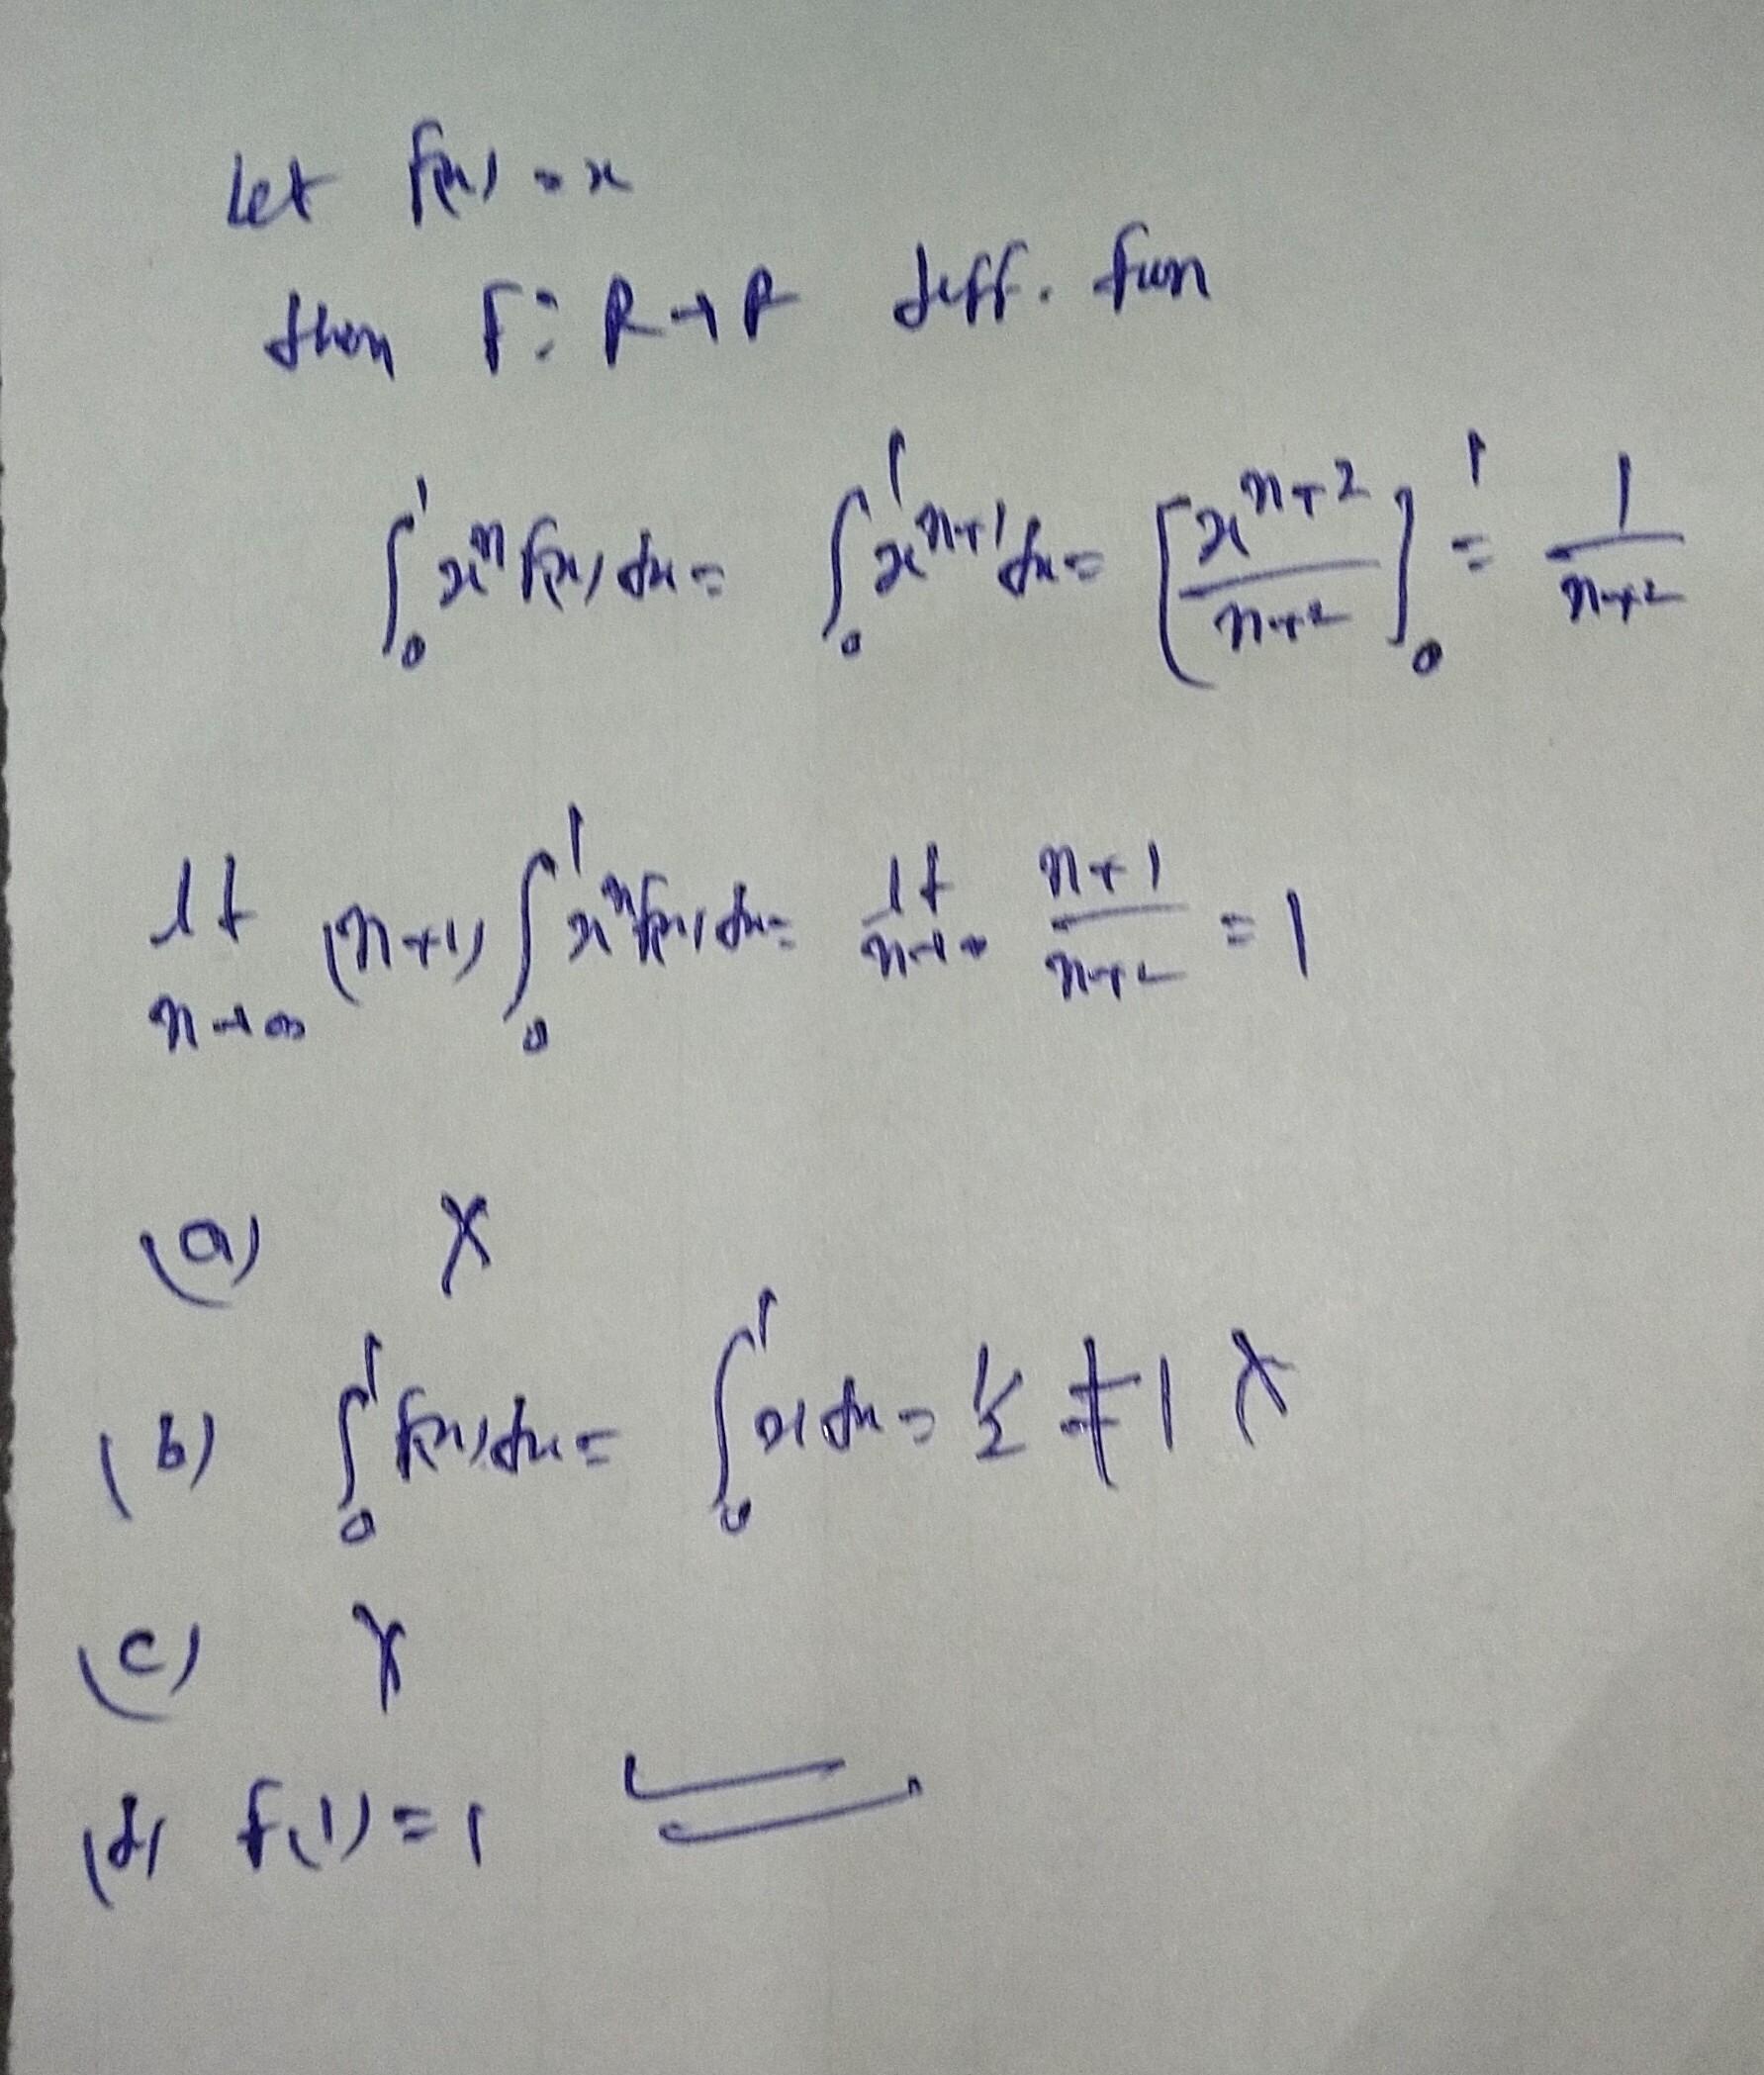 Let f(x) = x
then f: R→R diff. fun
∫₀¹ xⁿ f(x) dx = ∫₀¹ xⁿ⁺¹ dx = [xⁿ⁺²/n+2]₀¹ = 1/n+2
lt n→∞ (n+1) ∫₀¹ xⁿ f(x) dx = lt n→∞ n+1/n+2 = 1
(a) X
(b) ∫₀¹ f(x) dx = ∫₀¹ x dx = 1/2 ≠ 1 X
(c) X
(d) f(1) = 1